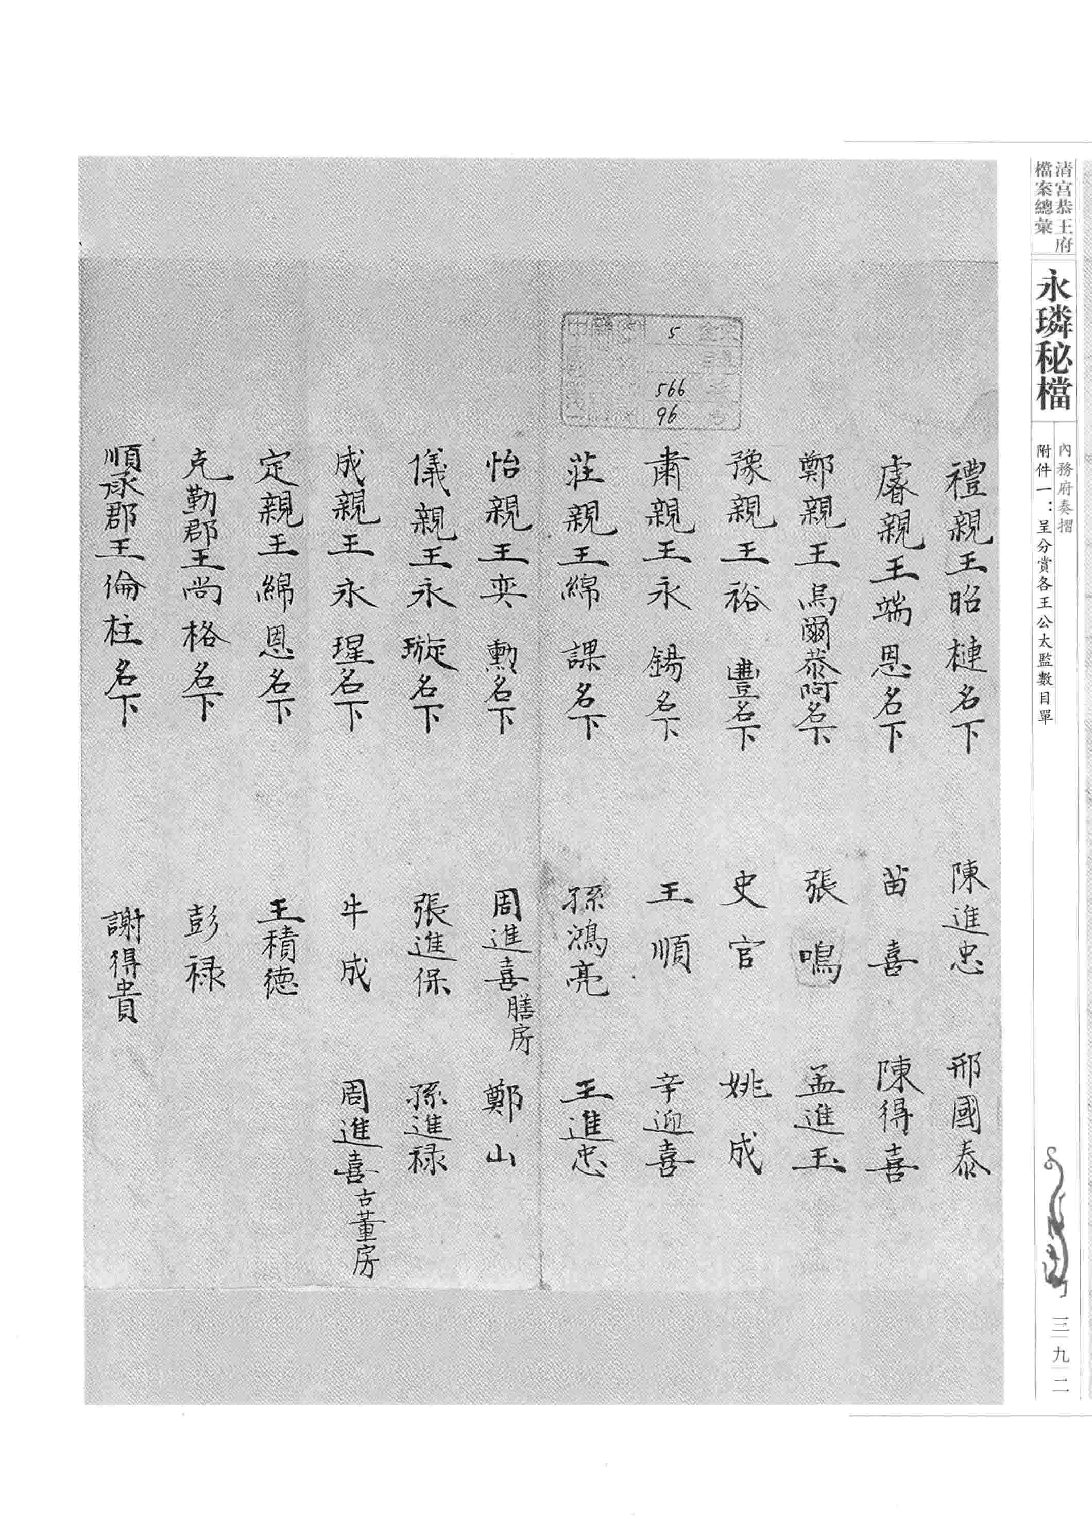 清宮恭王府
檔案總彙
永璘秘檔
內務府奏摺
附件一：呈分賞各王公太監數目單
三九二
5
566
96
禮親王昭槤名下 陳進忠 邢國泰
睿親王端恩名下 苗喜 陳得喜
鄭親王烏爾恭阿名下 張鳴 孟進玉
豫親王裕豐名下 史官 姚成
肅親王永錫名下 王順 辛迎喜
莊親王綿課名下 孫鴻亮 王進忠
怡親王奕勳名下 周進喜膳房 鄭山
儀親王永璇名下 張進保 孫進祿
成親王永瑆名下 牛成 周進喜古董房
定親王綿恩名下 王積德
克勤郡王尚格名下 彭祿
順承郡王倫柱名下 謝得貴